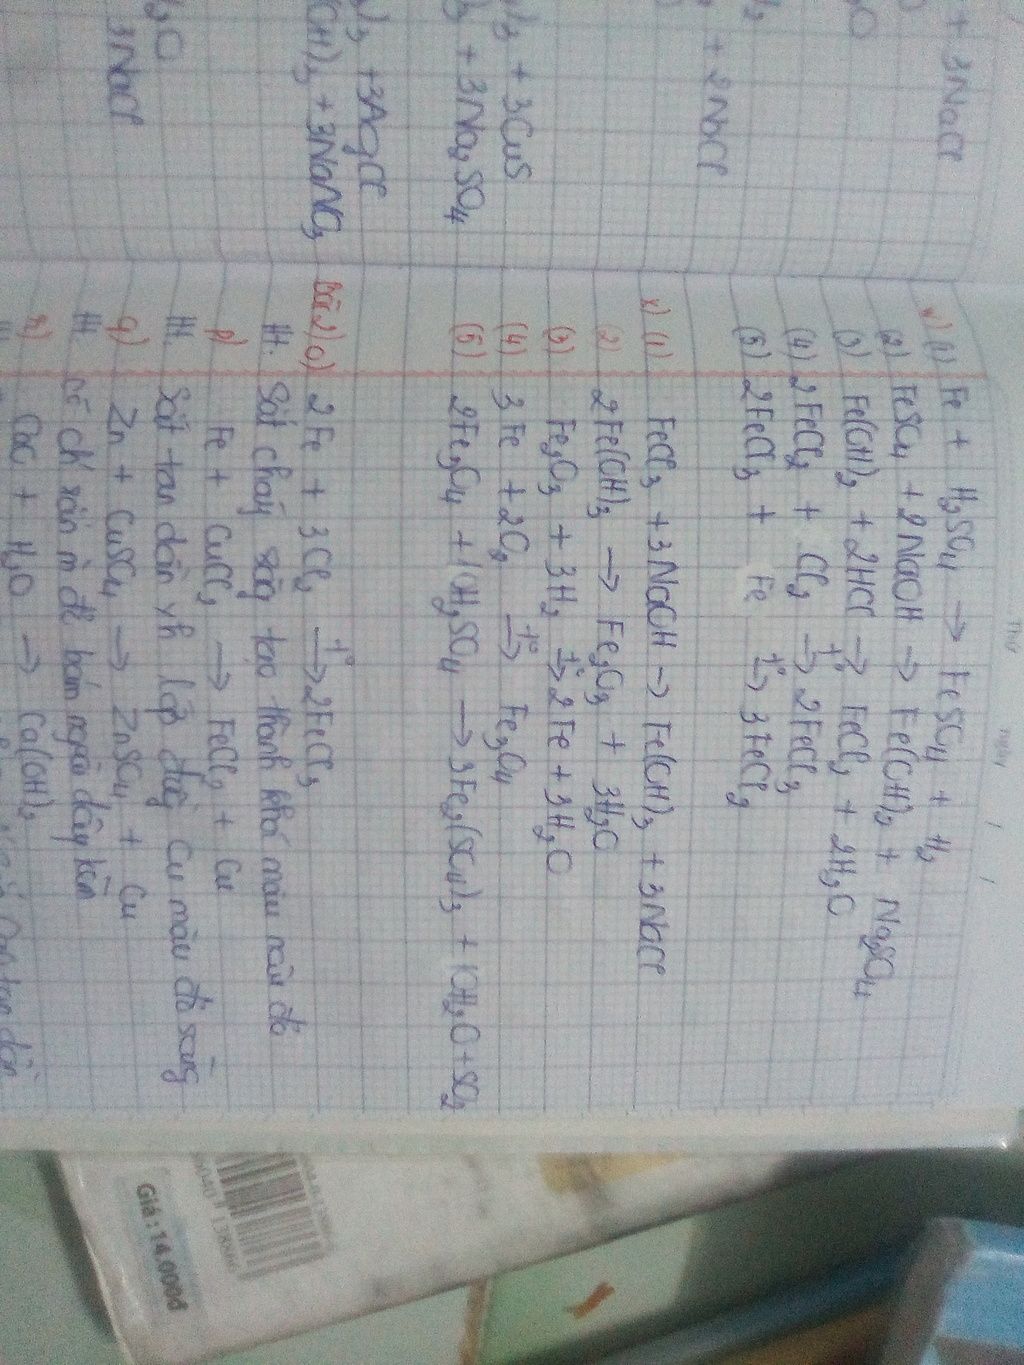 + 3NaCl
+ 2NaCl
+ 3CuS
+ 3Na2SO4
+3AgCl
+ 3NaNO3
3NaCl
Thứ ngày / /
v) (1) Fe + H2SO4 → FeSO4 + H2
(2) FeSO4 + 2NaOH → Fe(OH)2 + Na2SO4
(3) Fe(OH)2 + 2HCl → FeCl2 + 2H2O
(4) 2FeCl2 + Cl2 t° → 2FeCl3
(5) 2FeCl3 + Fe t° → 3FeCl2
x) (1) FeCl3 + 3NaOH → Fe(OH)3 + 3NaCl
(2) 2Fe(OH)3 → Fe2O3 + 3H2O
(3) Fe2O3 + 3H2 t° → 2Fe + 3H2O
(4) 3Fe + 2O2 t° → Fe3O4
(5) 2Fe3O4 + 10H2SO4 → 3Fe2(SO4)3 + 10H2O + SO2
Bài 2) o) 2Fe + 3Cl2 t° → 2FeCl3
Ht. Sắt cháy sáng tạo thành khói màu nâu đỏ
p) Fe + CuCl2 → FeCl2 + Cu
Ht. Sắt tan dần vh lớp đồng Cu màu đỏ
q) Zn + CuSO4 → ZnSO4 + Cu
Ht. có chất rắn m đỏ bám ngoài dây kẽm
r) CaO + H2O → Ca(OH)2
Giá : 14.000đ